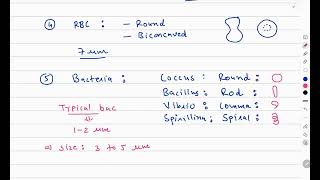 ④ RBC : - Round
- Biconcaved
7 um
⑤ Bacteria : Coccus : Round :
Bacillus : Rod :
Vibrio : Comma :
Spirillina : Spiral :
Typical bac
1-2 um
⇒ size : 3 to 5 um